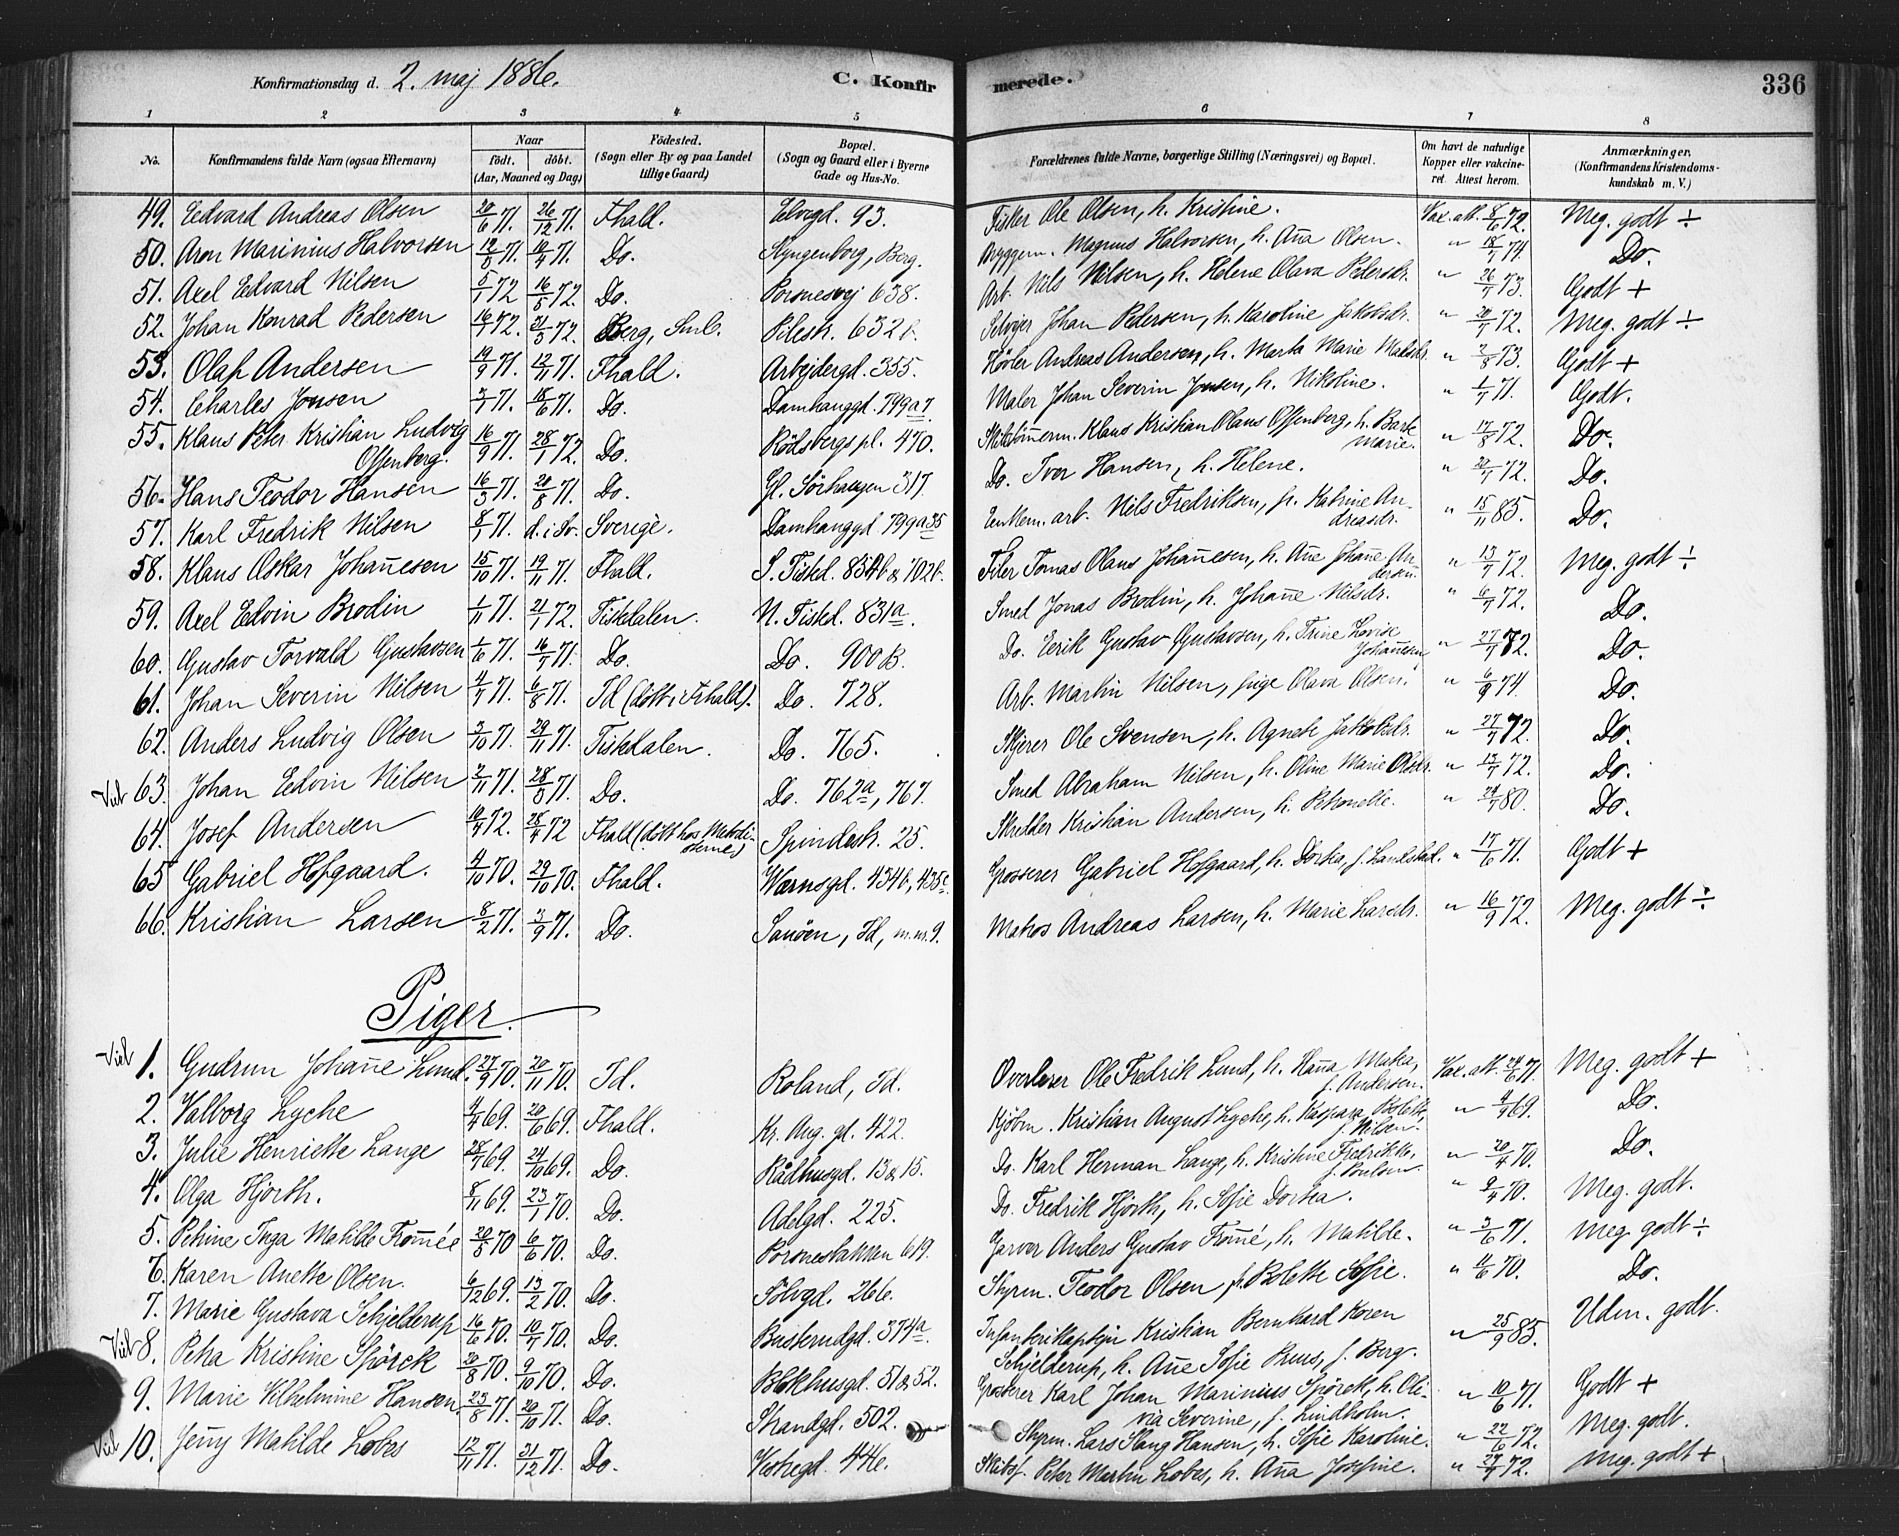 Konfirmationsdag d. 2. maj 1886. C. Konfirmerede. 336
1 2 3 4 5 6 7 8
No. Konfirmandens fulde Navn (ogsaa Efternavn) Naar födt. döbt. (Aar, Maaned og Dag) Födested. (Sogn eller By og paa Landet tillige Gaard) Bopæl. (Sogn og Gaard eller i Byerne Gade og Hus-No. Forældrenes fulde Navne, borgerlige Stilling (Næringsvei) og Bopæl. Om havt de naturlige Kopper eller vakcineret. Attest herom. Anmærkninger, (Konfirmandens Kristendomskundskab m. V.)
49. Edvard Andreas Olsen 20/6 71. 26/12 71. Fhald. 93. Fisker Ole Olsen, h. Kristine. Vax. att. 8/6 72. Meg. godt ÷
50. Aron Marinius Halvorsen 12/3 71. 10/4 71. Do. Klyngenborg, Berg. Bryggem. Magnus Halvorsen, h. Aña Olsen. " 18/7 74. Do.
51. Axel Edvard Nilsen 5/1 72 16/5 72. Do. Porsnesvej 638. Arb. Nils Nilsen, h. Helene Olava Pedersdr. " 26/7 73. Godt +
52. Johan Konrad Pedersen 16/1 72. 31/3 72. Berg, Sml. Pilestr. 632b. Selvejer Johan Pedersen, h. Karoline Jakobsdr. " 20/7 72. Meg. godt ÷
53. Olaf Andersen 19/9 71. 12/11 71. Fhald. Arbejdergd. 355. Høvler Andreas Andersen, h. Marta Marie Matsdr. " 2/8 73. Godt +
54. Charles Jonsen 3/1 71. 18/6 71. Do. Damhauggd. 799a7 Maler Johan Severin Jonsen, h. Nikoline. " 1/7 71. Godt.
55. Klaus Peter Kristian Ludvig Offenberg. 16/9 71. 28/1 72. Do. Rödsbergs pl. 470. Skibstømerm. Klaus Kristian Olaus Offenberg, h. Barb. marie. " 17/8 72. Do.
56. Hans Teodor Hansen 16/3 71. 20/8 71. Do. Gl. Sörhaugen 317. Do. Iver Hansen, h. Helene. " 72. Do.
57. Karl Fredrik Nilsen 8/1 71. d. i Sv. Sverige. Damhauggd. 799a35 Enkem. arb. Nils Fredriksen, fr. Katrine Andreasdr. " 15/11 85. Do.
58. Klaus Oskar Johañesen 15/10 71. 19/11 71. Fhald. S. Tistd. 854b & 702b. Filer Tomas Olaus Johañesen, h. Añe Johañe Andersen. " 13/7 72. Meg. godt ÷
59. Axel Edvin Brodin 1/11 71. 21/1 72. Tistedalen. N. Tistd. 831a. Smed Jonas Brodin, h. Johañe Nilsdr. " 6/7 72. Do.
60. Gustav Torvald Gustavsen 1/6 71. 16/7 71. Do. Do. 900 B. Do. Erik Gustav Gustavsen, h. Trine Lovise Johañesen, " 27/7 72. Do.
61. Johan Severin Nilsen 4/7 71. 6/8 71. Id (döbt i Frhald). Do. 728. Arb. Martin Nilsen, pige Olava Olsen. " 6/9 74. Do.
62. Anders Ludvig Olsen 3/10 71. 29/11 71. Tistedalen. Do. 765. Skjerer Ole Svensen, h. Agnete Jakobsdr. " 27/7 72. Do.
63. Johan Edvin Nilsen 2/11 71. 28/3 71. Do. Do. 762a, 767. Smed Abraham Nilsen, h. Oline Marie Olsdr. " 13/7 72. Do.
64. Josef Andersen 10/4 72. 28/4 72 Fhald (döbt hos Metodisterne) Spindestr. 25. Skrædder Kristian Andersen, h. Petronelle. " 24/7 80. Do.
65 Gabriel Hofgaard. 4/10 70. 29/10 70. Fhald. Wærnsgd. 434b, 435c. Grosserer Gabriel Hofgaard, h. Dorkea, f. Landstad. " 17/6 71. Godt +
66. Kristian Larsen 8/2 71. 3/9 71. Do. Sauöen, Id, m.nr. 9. Matros Andreas Larsen, h. Marie Larsdr. " 16/9 72. Meg. godt ÷
Piger.
1. Gudrun Johañe Lund. 27/9 70. 20/11 70. Id. Roland, Id. Overlærer Ole Fredrik Lund, h. Haña Matea, f. Andersen. Vax. att. 24/6 71. Meg. godt +
2. Valborg Lyche 4/4 69. 20/6 69. Fhald. Kr. Aug. gd. 422. Kjöbm. Kristian August Lyche, h. Kaspara Bolette, f. Nilsen. " 4/9 69. Do.
3. Julie Henriette Lange 28/7 69. 24/10 69. Do. Rådhusgd. 13 & 15. Do. Karl Herman Lange, h. Kristine Fredrikke, f. Poulsen. " 20/4 70. Do.
4. Olga Hjorth. 8/11 69. 23/1 70. Do. Adelgd. 225. Do. Fredrik Hjorth, h. Sofie Dortea. " 9/4 70. Meg. godt.
5. Petrine Inga Matilde Tromée 20/3 70 6/6 70. Do. Porsnesbakken 619. Garver Anders Gustav Tromé, h. Matilde. " 3/6 71. Meg. godt ÷
6. Karen Anette Olsen. 6/12 69. 13/2 70. Do. Sölvgd. 266. Styrm. Teodor Olsen h. Bolette Sofie. " 11/6 70. Do.
7. Marie Gustava Schjelderup 16/6 70. 10/7 70. Do. Busterudgd. 374a. Infanterikaptejn Kristian Bernhard Koren Schjelderup, h. Añe Sofie Bruus, f. Berg. " 25/9 85. Udm. godt.
8. Petra Kristine Spörck 20/8 70. 9/10 70. Do. Blokhusgd. 51 & 52. Grosserer Karl Johan Marinius Spörck, h. Olivia Severine, f. Lindholm. " 10/6 71. Godt +
9. Marie Vilhelmine Hansen. 23/8 71. 20/10 71. Do. Strandgd. 502. Styrm. Lars Slang Hansen, h. Sofie Karoline. " 22/6 72. Meg. godt.
10. Jeñy Matilde Lobes 12/11 71. 31/12 71. Do. Vestregd. 446. Skibsf. Peter Martin Lobes, h. Aña Josefine. " 27/7 72. Meg. godt +